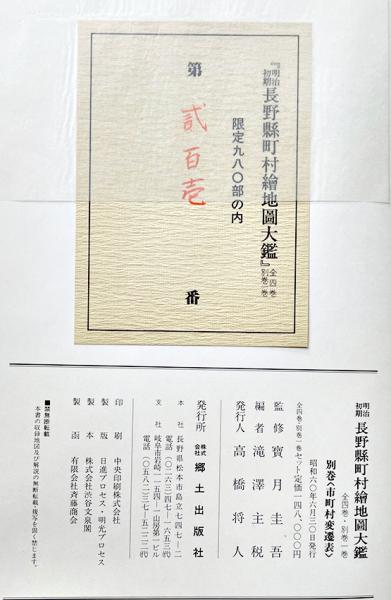 『明治初期 長野縣町村繪地圖大鑑』 全四巻 別巻一巻
限定九八〇部の内
第 貳百壱 番
明治初期 長野縣町村繪地圖大鑑 全四巻・別巻一巻
別巻〈市町村変遷表〉
昭和六〇年六月三〇日発行
全四巻・別巻一巻セット定価一四八、〇〇〇円
監修 寶月圭吾
編者 滝澤主税
発行人 高橋将人
発行所 株式会社 郷土出版社
本社 長野県松本市島立七四七―二
電話(〇二六三)四七―一六五三㈹
支社 岐阜市岩崎一―五四―一山房第一ビル
電話(〇五八二)三七―五一二二㈹
印刷 中央印刷株式会社
製版 日進プロセス・明光プロセス
製本 株式会社渋谷文泉閣
製函 有限会社斉藤商会
■禁無断転載
本書の収録地図及び解説の無断転載・複写を固く禁じます。